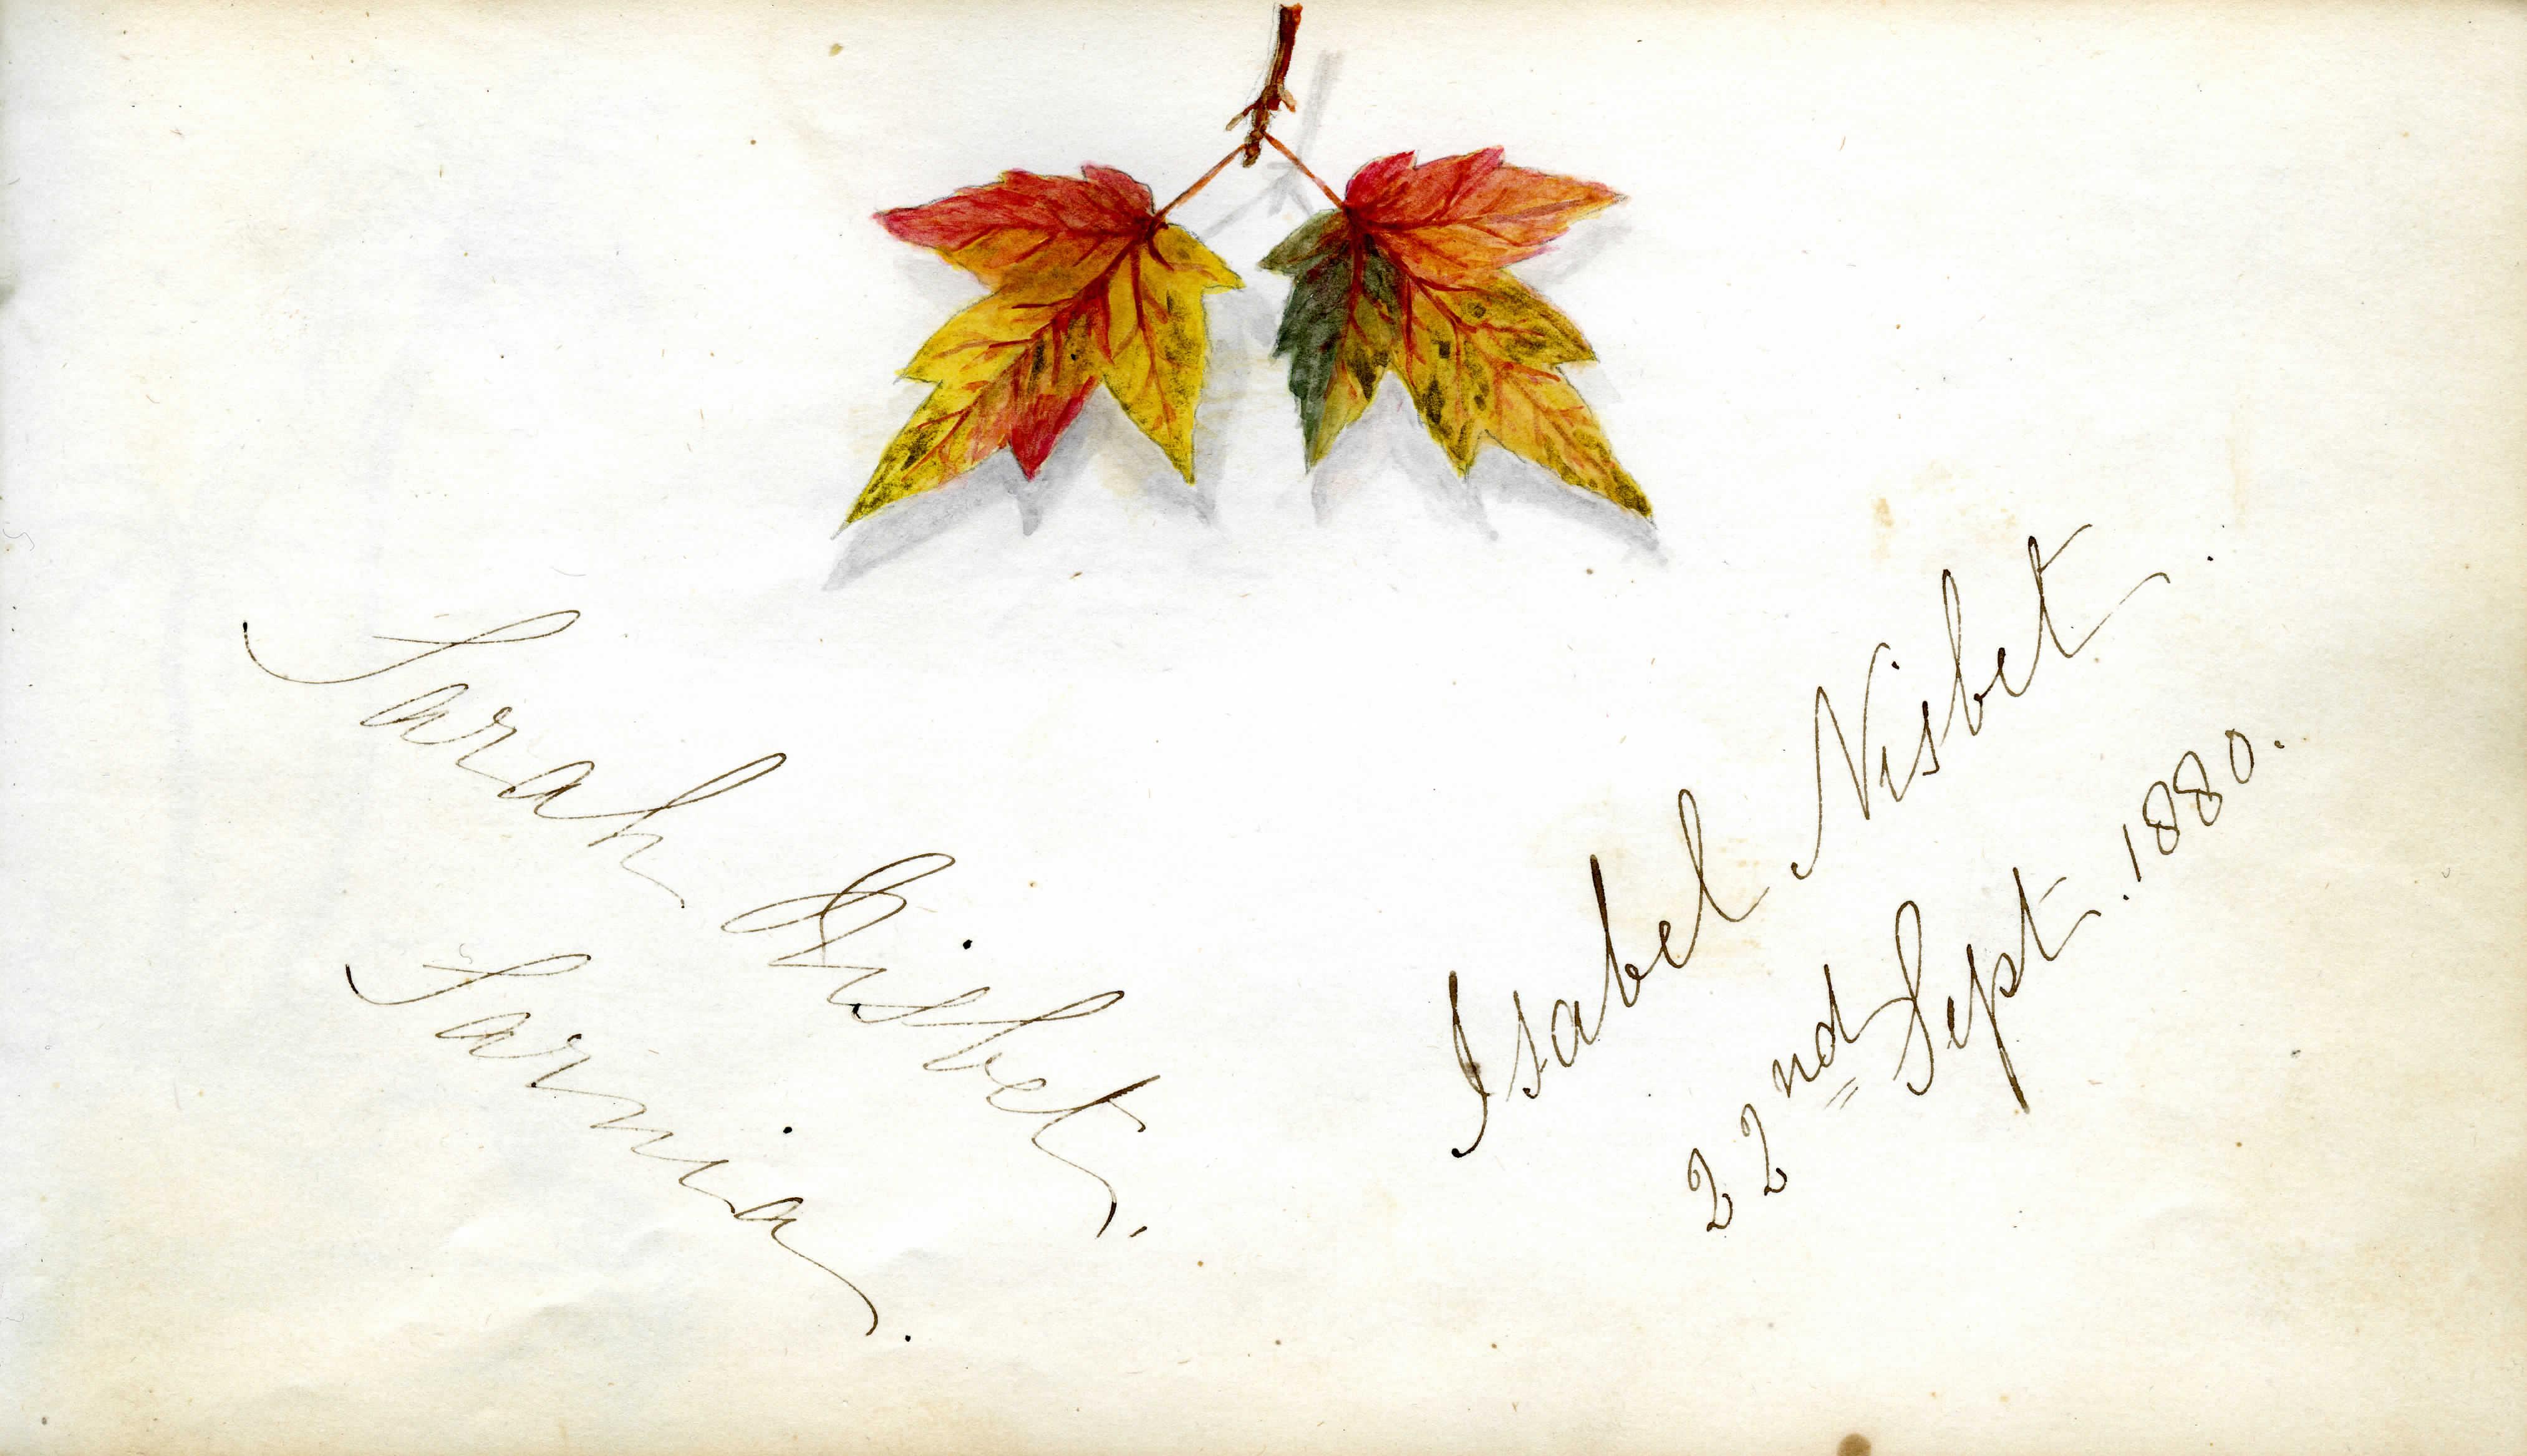 Sarah Nisbet.
Sarnia.
Isabel Nisbet.
22nd Sept. 1880.